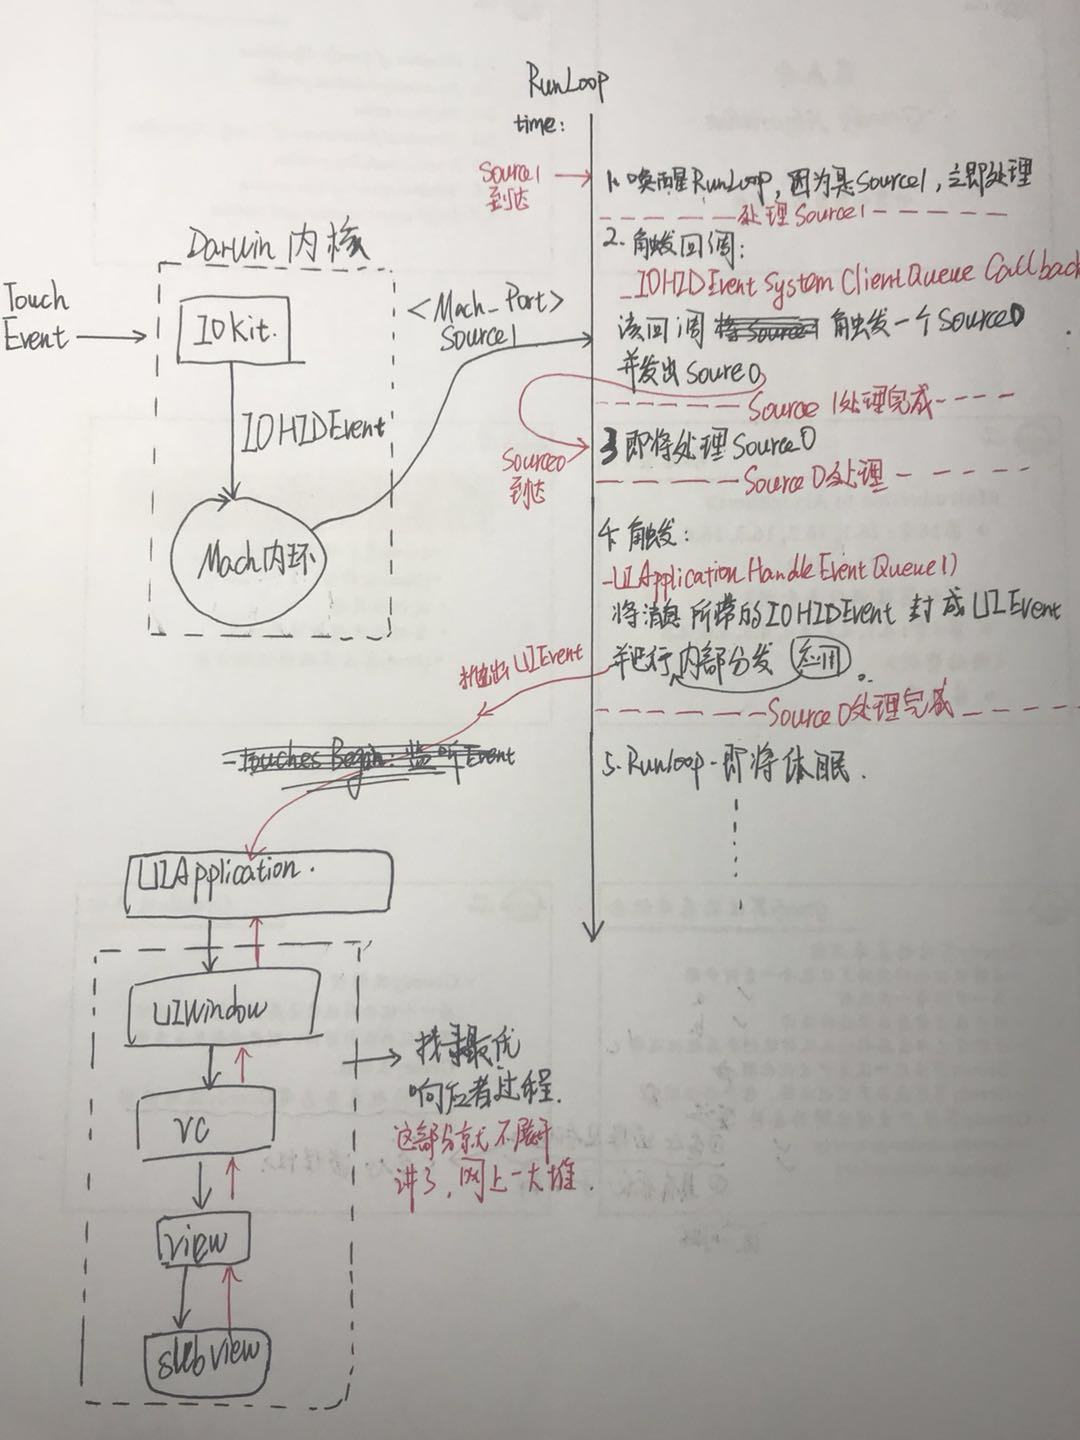 RunLoop
time:
Source1
到达
1. 唤醒RunLoop, 因为是Source1, 立即处理
处理 Source1
2. 触发回调:
_IOHIDEvent System Client Queue Callback
该回调 触发一个 Source0
并发出 Soure0
Source 1处理完成
Source0
到达
3 即将处理 Source0
Source 0处理
4 触发:
_UIApplication Handle Event Queue()
将消息所带的IOHIDEvent 封成UIEvent
并进行内部分发 应用
Source 0处理完成
5. Runloop - 即将休眠.
Darwin 内核
Touch
Event
IOKit.
IOHIDEvent
Mach内环
<Mach_Port>
Source1
抛出 UIEvent
-touches Begin: 监听 Event
UIApplication.
UIWindow
VC
view
subview
找寻最优
响应者过程.
这部分就不展开
讲了, 网上一大堆.